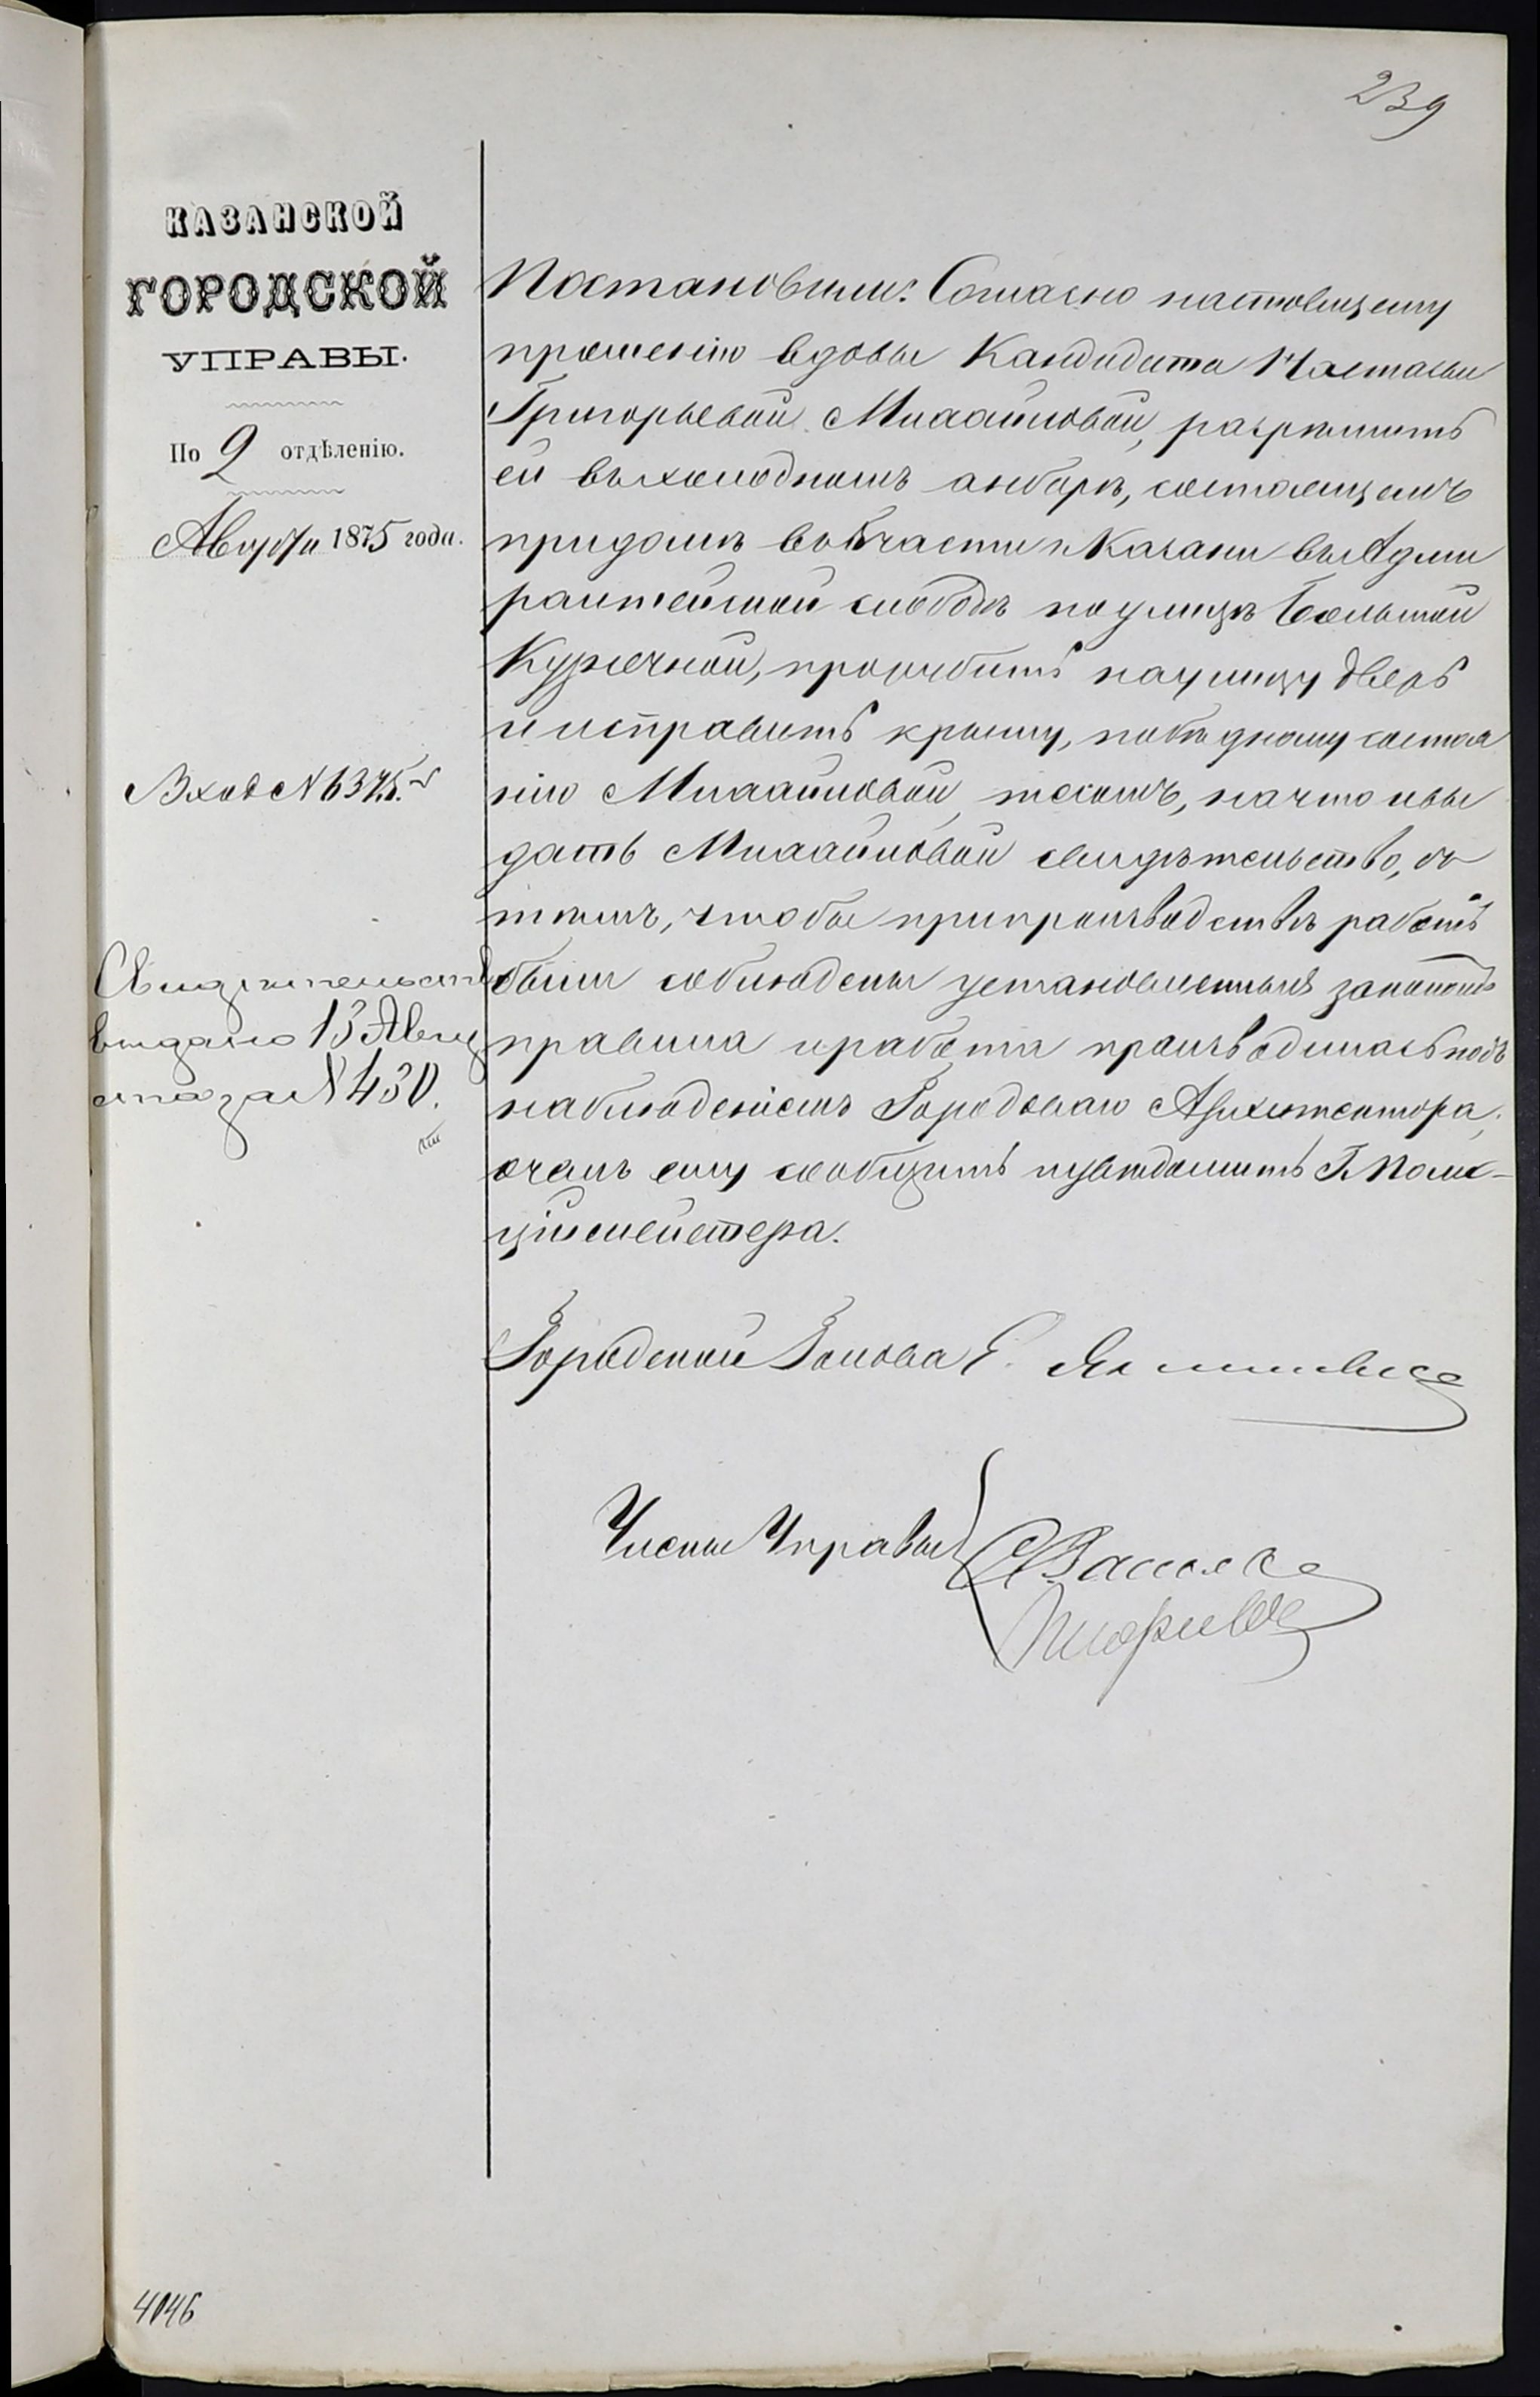 239
КАЗАНСКОЙ
ГОРОДСКОЙ
УПРАВЫ.
По 2 отдѣленію.
Августа 1875 года.
Вход №6375.
Свидѣтельств
выдано 13 Авгу
ста за №430.
Постановили: Согласно настоящему
прошенію вдовы Кандидата Настасьи
Григорьевой, разрѣшить
ей въ холодномъ анбарѣ, состоящемъ
при домѣ во части г. Казани въ Адми
ралтейской слободѣ по улицѣ Большой
Кузнечной, прорубить на улицу дверь
и исправить крышу, по бѣдному состоя
нію тесомъ, на что и вы
дать свидѣтельство, съ
тѣмъ, чтобы при производствѣ работъ
были соблюдены установленныя закономъ
правила и работа производилась подъ
наблюденіемъ Городскаго Архитектора,
о чемъ ему сообщить и увѣдомить Г. Поли-
ціймейстера.
Городской Голова Е.
Члены Управы
4046